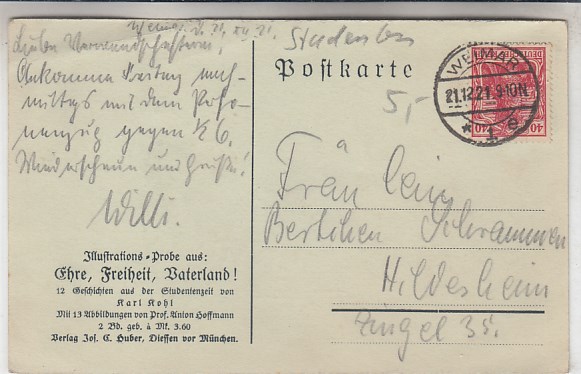 Weimar, d. 21. XII. 21.
Ankomme Freitag nach-
mittags mit dem Perso-
nenzug gegen ½ 6.
Wiedersehen und Grüße!
Willi.
Illustrations-Probe aus:
Ehre, Freiheit, Vaterland!
12 Geschichten aus der Studentenzeit von
Karl Kohl
Mit 13 Abbildungen von Prof. Anton Hoffmann
2 Bd. geb. à Mk. 3.60
Verlag Jos. C. Huber, Diessen vor München.
Studenten
Postkarte
5,-
WEIMAR
21.12.21. 9-10N
* 1 e
40 40
Fräulein
Bertchen Schrammen
Hildesheim
Zingel 35.